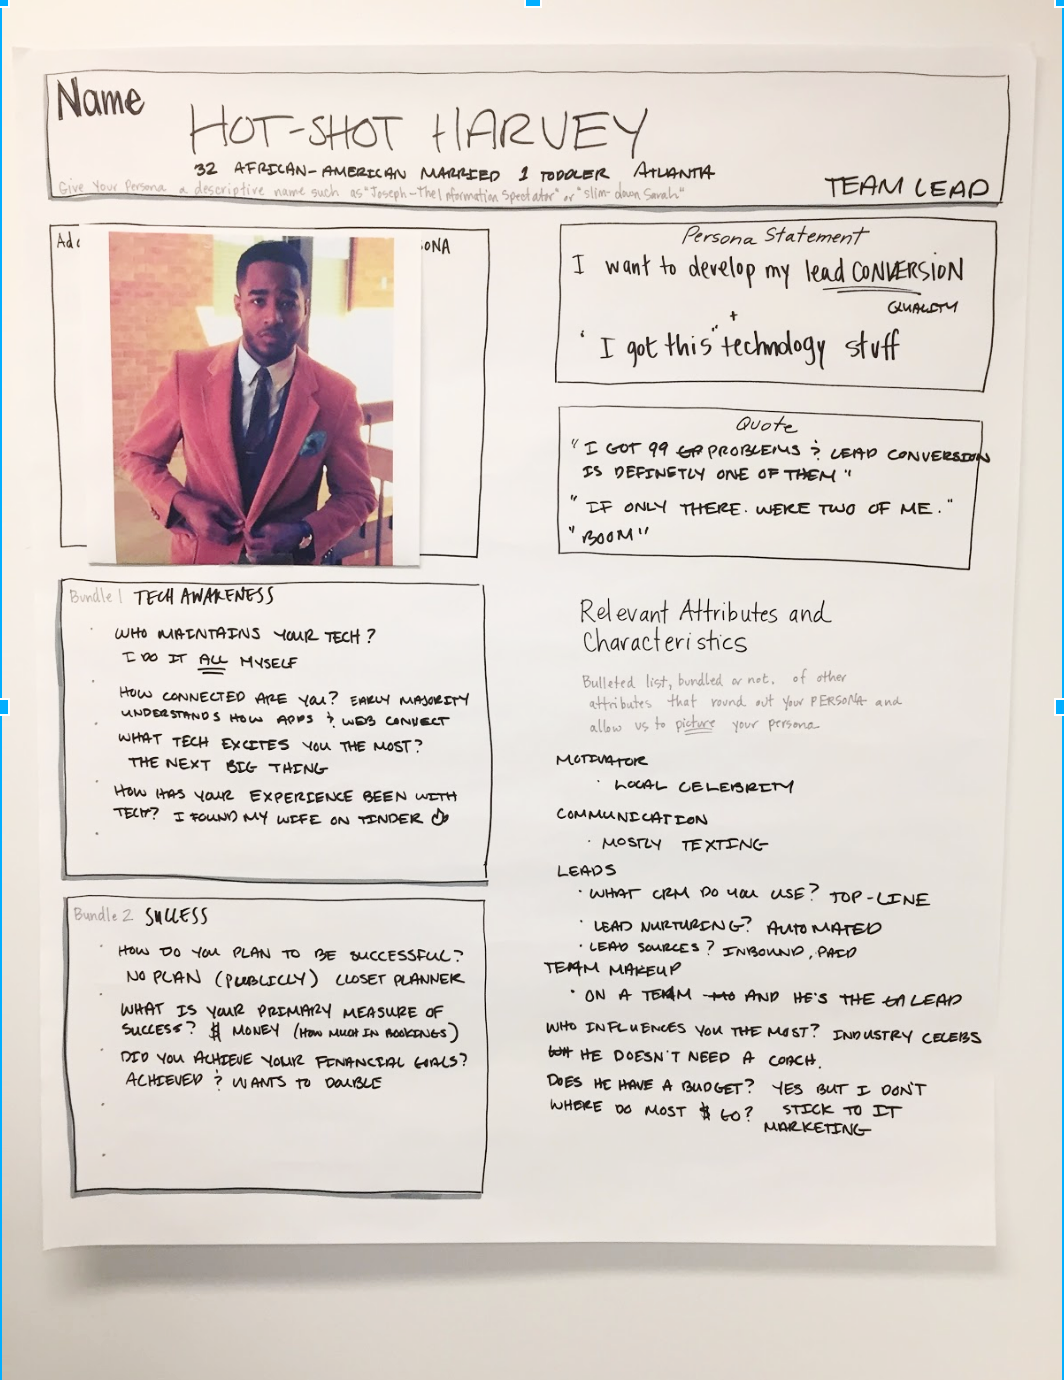 Name
HOT-SHOT HARVEY
32 AFRICAN-AMERICAN MARRIED 1 TODDLER ATLANTA
Give Your Persona a descriptive name such as "Joseph-The Information Spectator" or "Slim-down Sarah"
TEAM LEAD
Persona Statement
I want to develop my lead CONVERSION
QUALITY
+
' I got this" technology stuff
Quote
"I GOT 99 PROBLEMS & LEAD CONVERSION
IS DEFINETLY ONE OF THEM"
"IF ONLY THERE. WERE TWO OF ME."
"BOOM"
Bundle 1 TECH AWARENESS
WHO MAINTAINS YOUR TECH?
I DO IT ALL MYSELF
HOW CONNECTED ARE YOU? EARLY MAJORITY
UNDERSTANDS HOW APPS & WEB CONNECT
WHAT TECH EXCITES YOU THE MOST?
THE NEXT BIG THING
HOW HAS YOUR EXPERIENCE BEEN WITH
TECH? I FOUND MY WIFE ON TINDER
Bundle 2 SUCCESS
HOW DO YOU PLAN TO BE SUCCESSFUL?
NO PLAN (PUBLICLY) CLOSET PLANNER
WHAT IS YOUR PRIMARY MEASURE OF
SUCCESS? $ MONEY (HOW MUCH IN BOOKINGS)
DID YOU ACHIEVE YOUR FINANCIAL GOALS?
ACHIEVED & WANTS TO DOUBLE
Relevant Attributes and
Characteristics
Bulleted list, bundled or not, of other
attributes that round out your PERSONA and
allow us to picture your persona
MOTIVATOR
· LOCAL CELEBRITY
COMMUNICATION
· MOSTLY TEXTING
LEADS
· WHAT CRM DO YOU USE? TOP-LINE
· LEAD NURTURING? AUTOMATED
· LEAD SOURCES? INBOUND, PAID
TEAM MAKEUP
· ON A TEAM AND HE'S THE LEAD
WHO INFLUENCES YOU THE MOST? INDUSTRY CELEBS
HE DOESN'T NEED A COACH.
DOES HE HAVE A BUDGET? YES BUT I DON'T
STICK TO IT
WHERE DO MOST $ GO? MARKETING